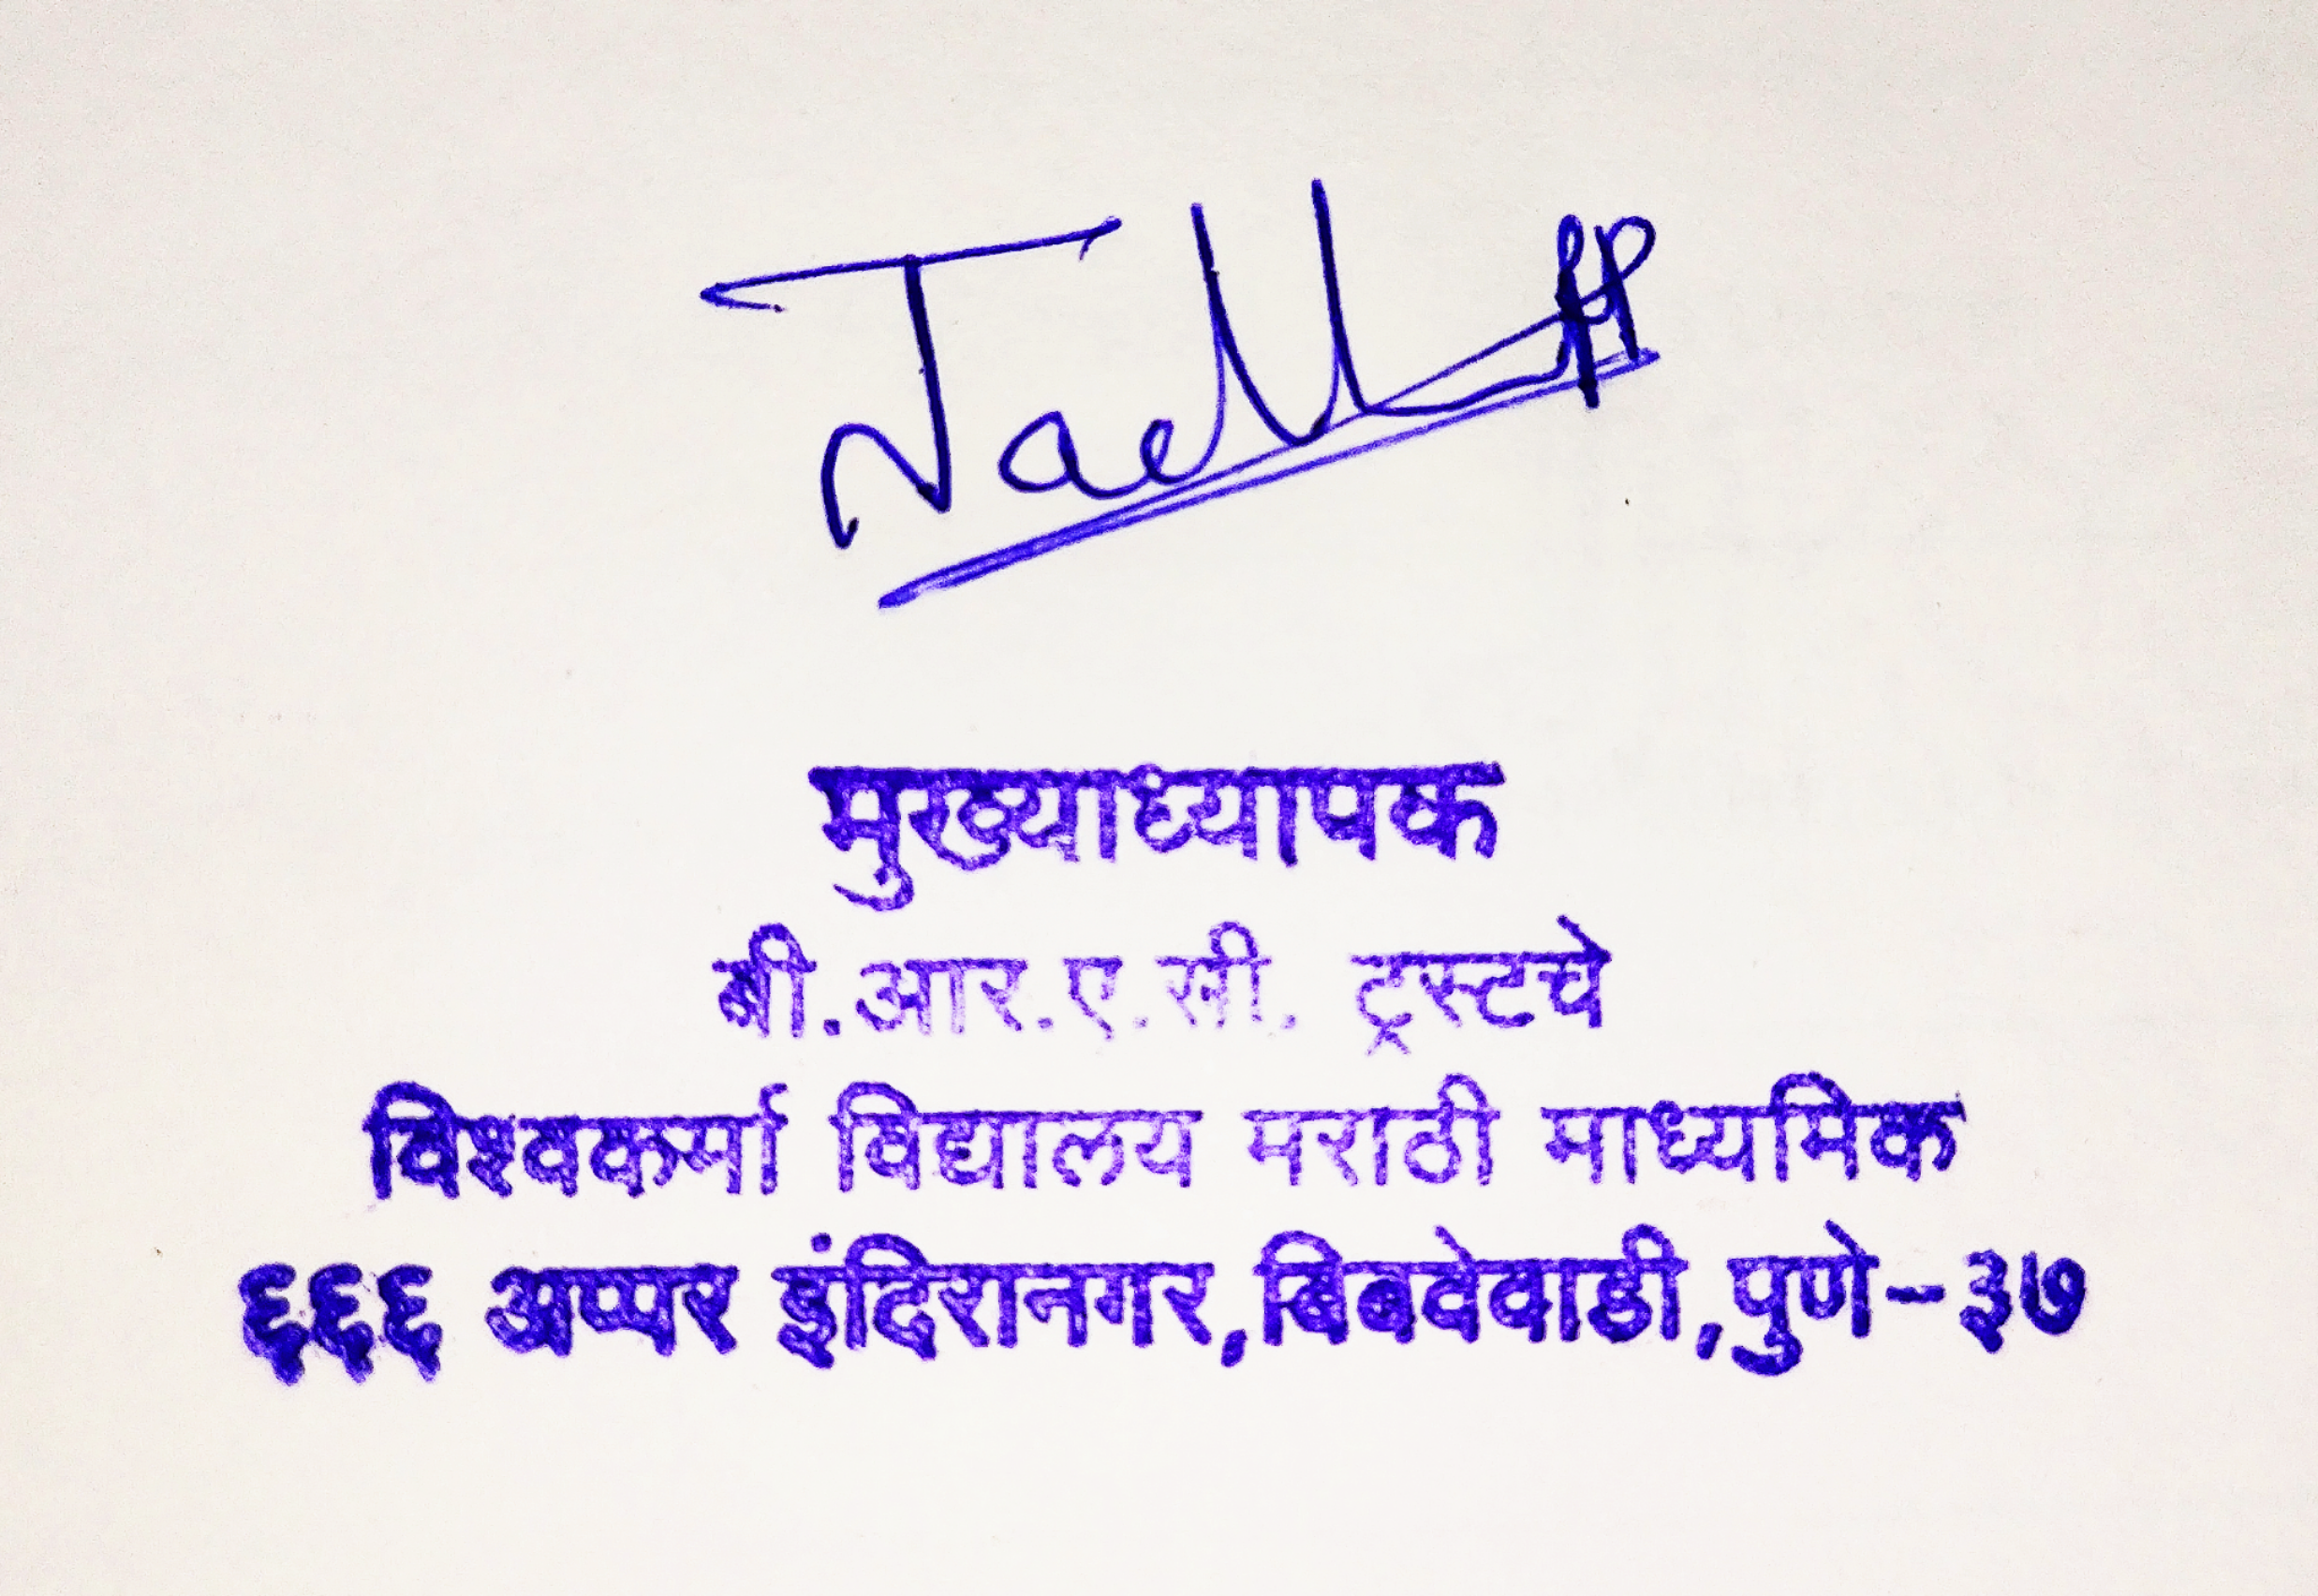 मुख्याध्यापक
बी.आर.ए.सी. ट्रस्टचे
विश्वकर्मा विद्यालय मराठी माध्यमिक
६६६ अप्पर इंदिरानगर,बिबवेवाडी,पुणे-३७